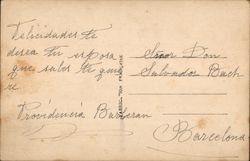 Felicidades te
desea tu esposa
que sabes te quie
re
Providencia
Señor Don
Salvador Bach
Barcelona